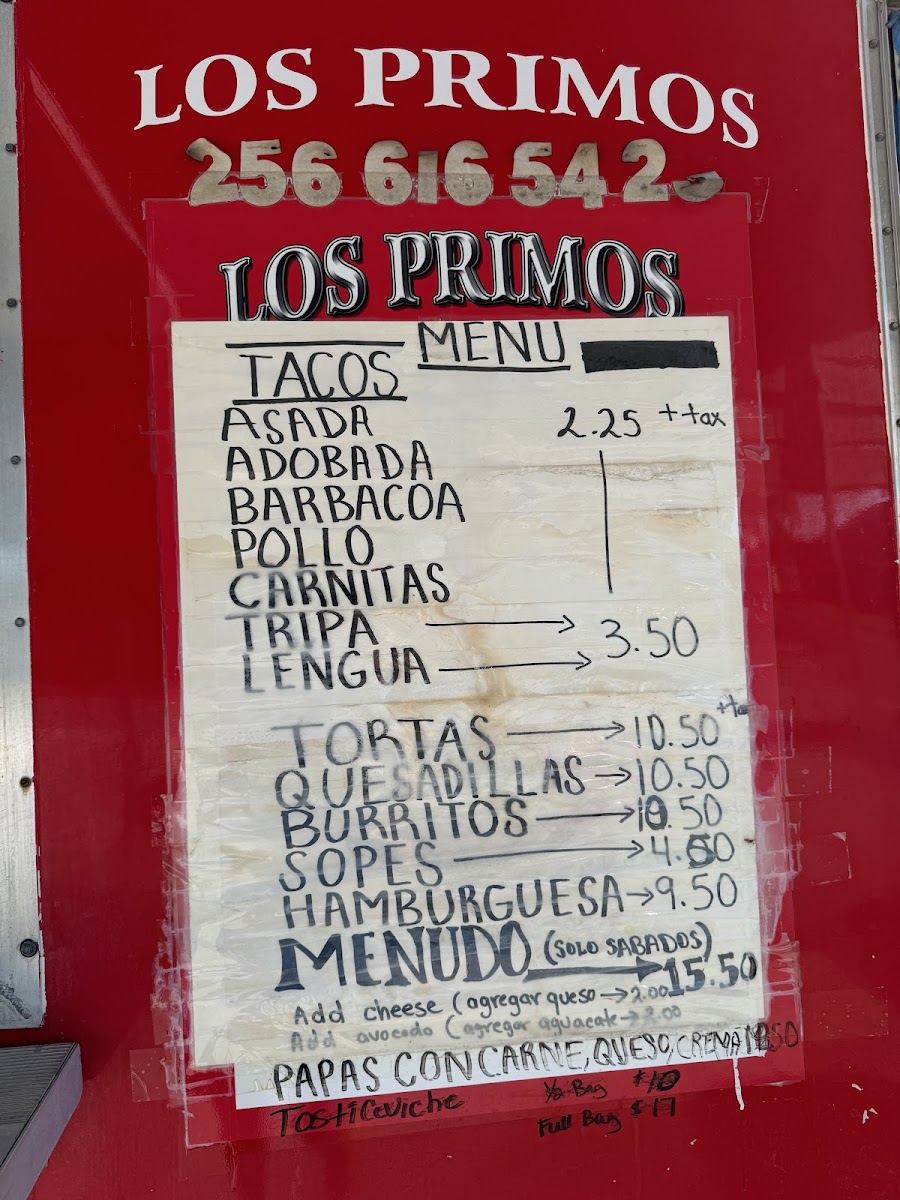 LOS PRIMOS
256 616 542
LOS PRIMOS
MENU
TACOS
ASADA 2.25 + tax
ADOBADA
BARBACOA
POLLO
CARNITAS
TRIPA → 3.50
LENGUA →
+ tax
TORTAS → 10.50
QUESADILLAS → 10.50
BURRITOS → 10.50
SOPES → 4.50
HAMBURGUESA → 9.50
MENUDO (SOLO SABADOS) → 15.50
Add cheese (agregar queso → 2.00
Add avocado (agregar aguacate → 2.00
PAPAS CON CARNE, QUESO, CREMA
Tosticeviche ½ Bag $10
Full Bag $17